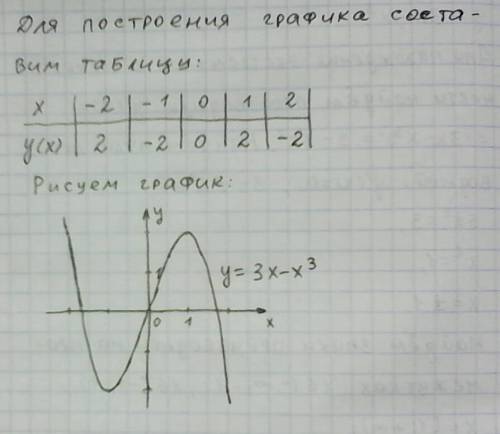 Для построения графика соста-
вим таблицу:
x | -2 | -1 | 0 | 1 | 2 |
y(x) | 2 | -2 | 0 | 2 | -2 |
Рисуем график:
y
y = 3x-x³
0 1 x